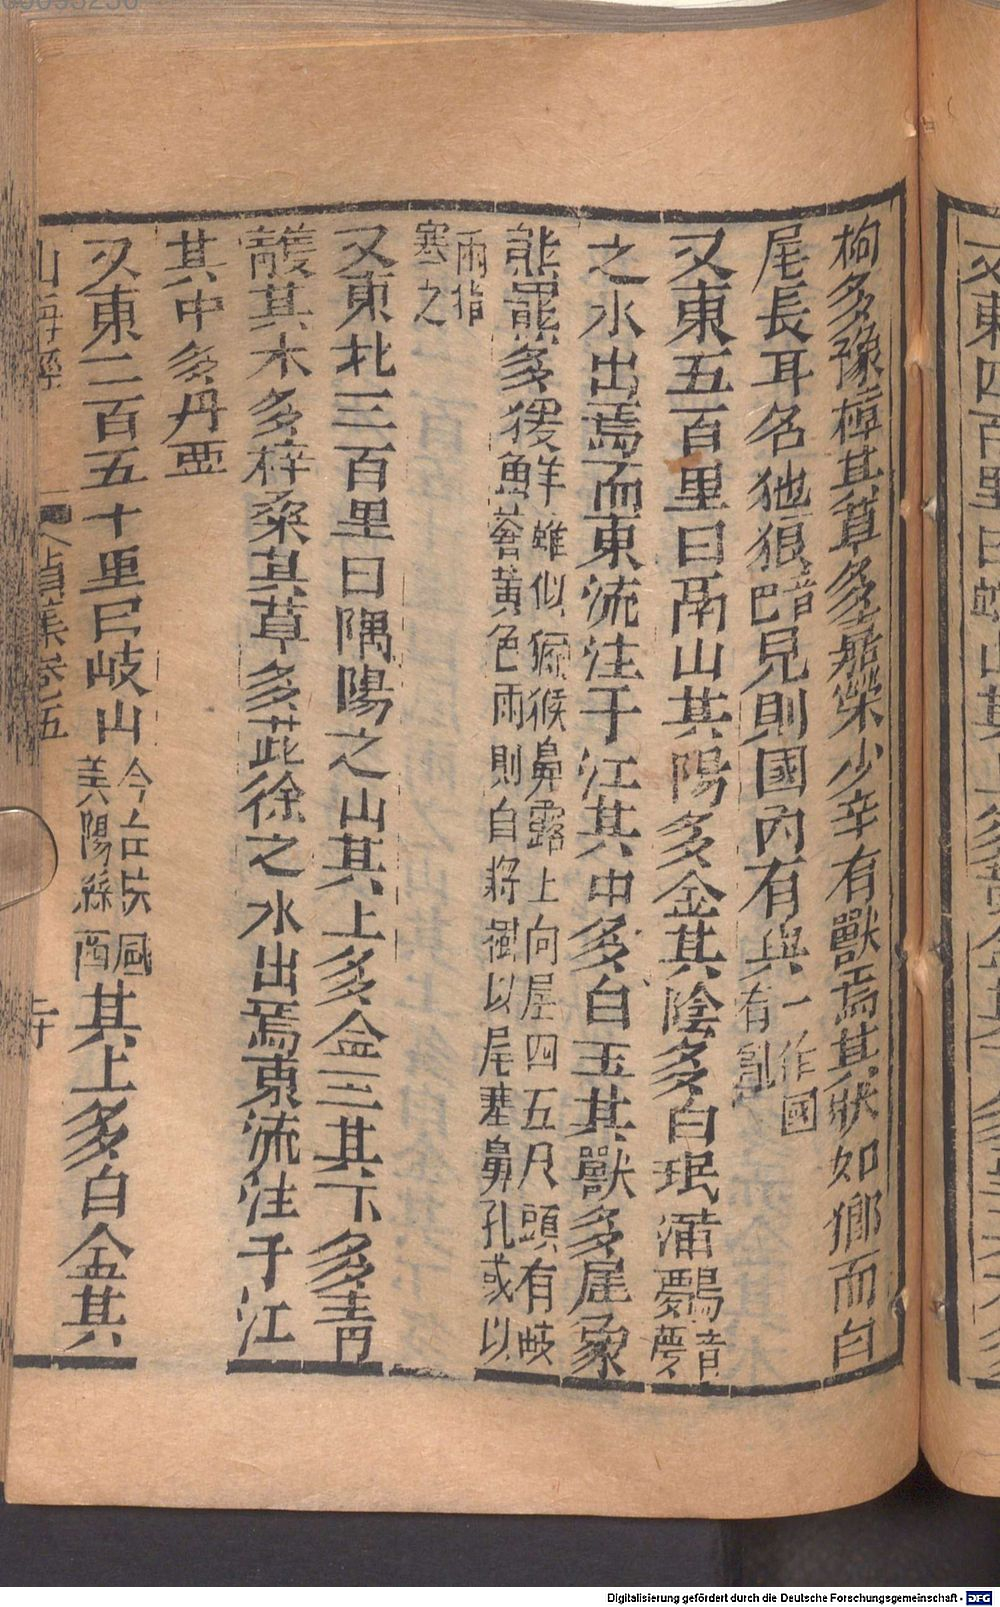 枸多豫樟其草多嘉榮少辛有獸焉其狀如狼而白
尾長耳名㹢狼音巴見則國內有兵一作國有亂
又東五百里曰鬲山其陽多金其陰多白珉蒲鸏音夢
之水出焉而東流注于江其中多白玉其獸多犀象
熊羆多猨蜼似獼猴鼻露上向尾四五尺頭有岐
蒼黃色雨則自將樹以尾塞鼻孔或以
兩指
塞之
又東北三百里曰隅陽之山其上多金玉其下多青
雘其木多梓桑其草多茈徐之水出焉東流注于江
其中多丹
又東二百五十里曰岐山今在扶風
美陽縣西其上多白金其
山海經
卷五
又東四百里曰
山其